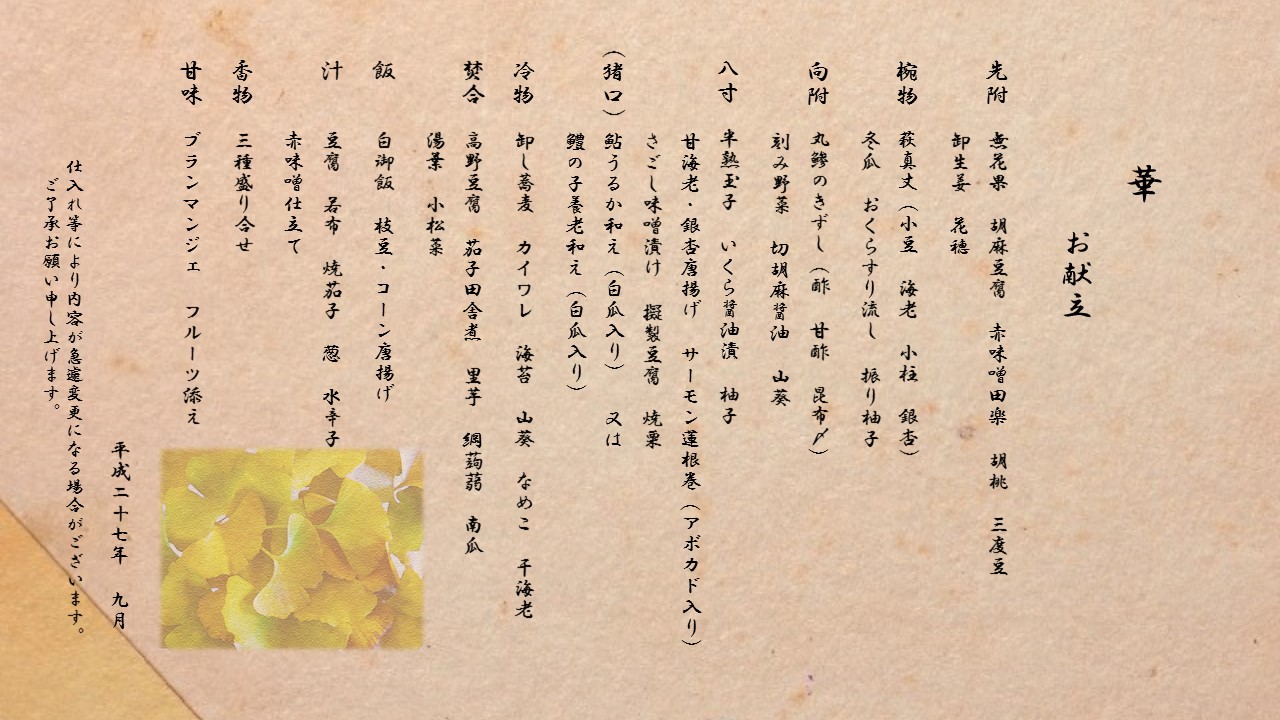 華
お献立
先附 無花果 胡麻豆腐 赤味噌田楽 胡桃 三度豆
卸生姜 花穂
椀物 萩真丈(小豆 海老 小柱 銀杏)
冬瓜 おくらすり流し 振り柚子
向附 丸鯵のきずし(酢 甘酢 昆布〆)
刻み野菜 切胡麻醤油 山葵
八寸 半熟玉子 いくら醤油漬 柚子
甘海老・銀杏唐揚げ サーモン蓮根巻(アボカド入り)
さごし味噌漬け 擬製豆腐 焼栗
(猪口) 鮎うるか和え(白瓜入り) 又は
鱧の子養老和え(白瓜入り)
冷物 卸し蕎麦 カイワレ 海苔 山葵 なめこ 干海老
焚合 高野豆腐 茄子田舎煮 里芋 絹蒟蒻 南瓜
湯葉 小松菜
飯 白御飯 枝豆・コーン唐揚げ
汁 豆腐 若布 焼茄子 葱 水辛子
赤味噌仕立て
香物 三種盛り合せ
甘味 ブランマンジェ フルーツ添え
平成二十七年 九月
仕入れ等により内容が急遽変更になる場合がございます。
ご了承お願い申し上げます。